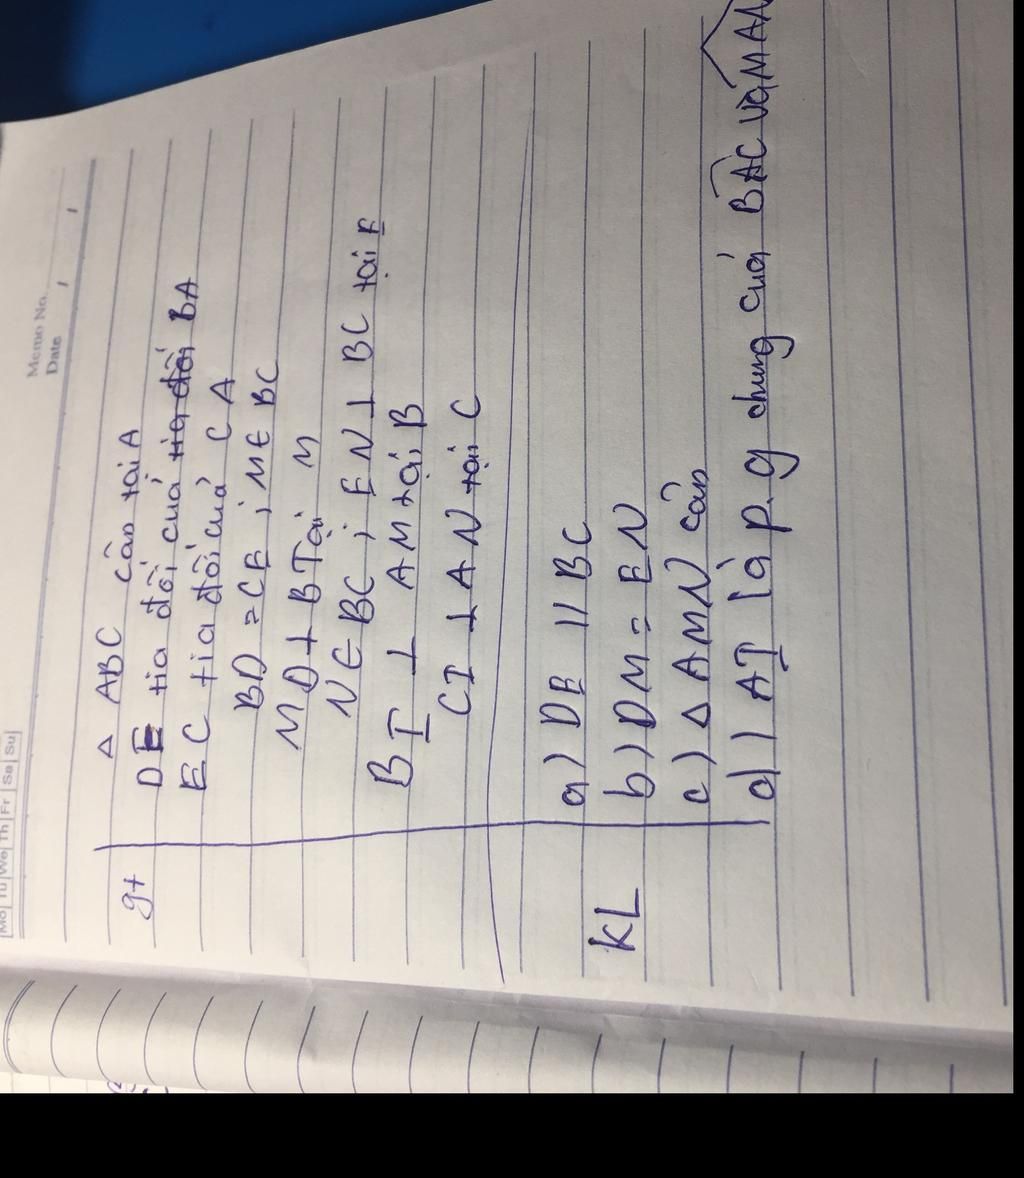 Memo No.
Date / /
Mo Tu We Th Fr Sa Su
gt
Δ ABC cân tại A
DE tia đối của tia đối BA
EC tia đối của CA
BD = CE ; M ∈ BC
MD ⊥ BTại M
N ∈ BC ; EN ⊥ BC tại E
BI ⊥ AM tại B
CI ⊥ AN tại C
KL
a) DE // BC
b) DM = EN
c) Δ AMN cân
d) AI là p.g chung của BAC và MAN